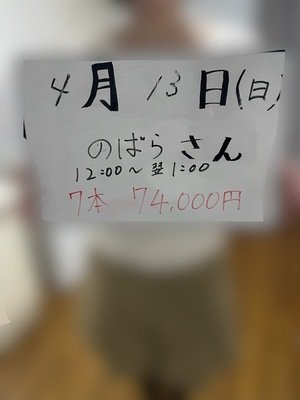 4月13日(日)
のばらさん
12:00～翌1:00
7本 74,000円